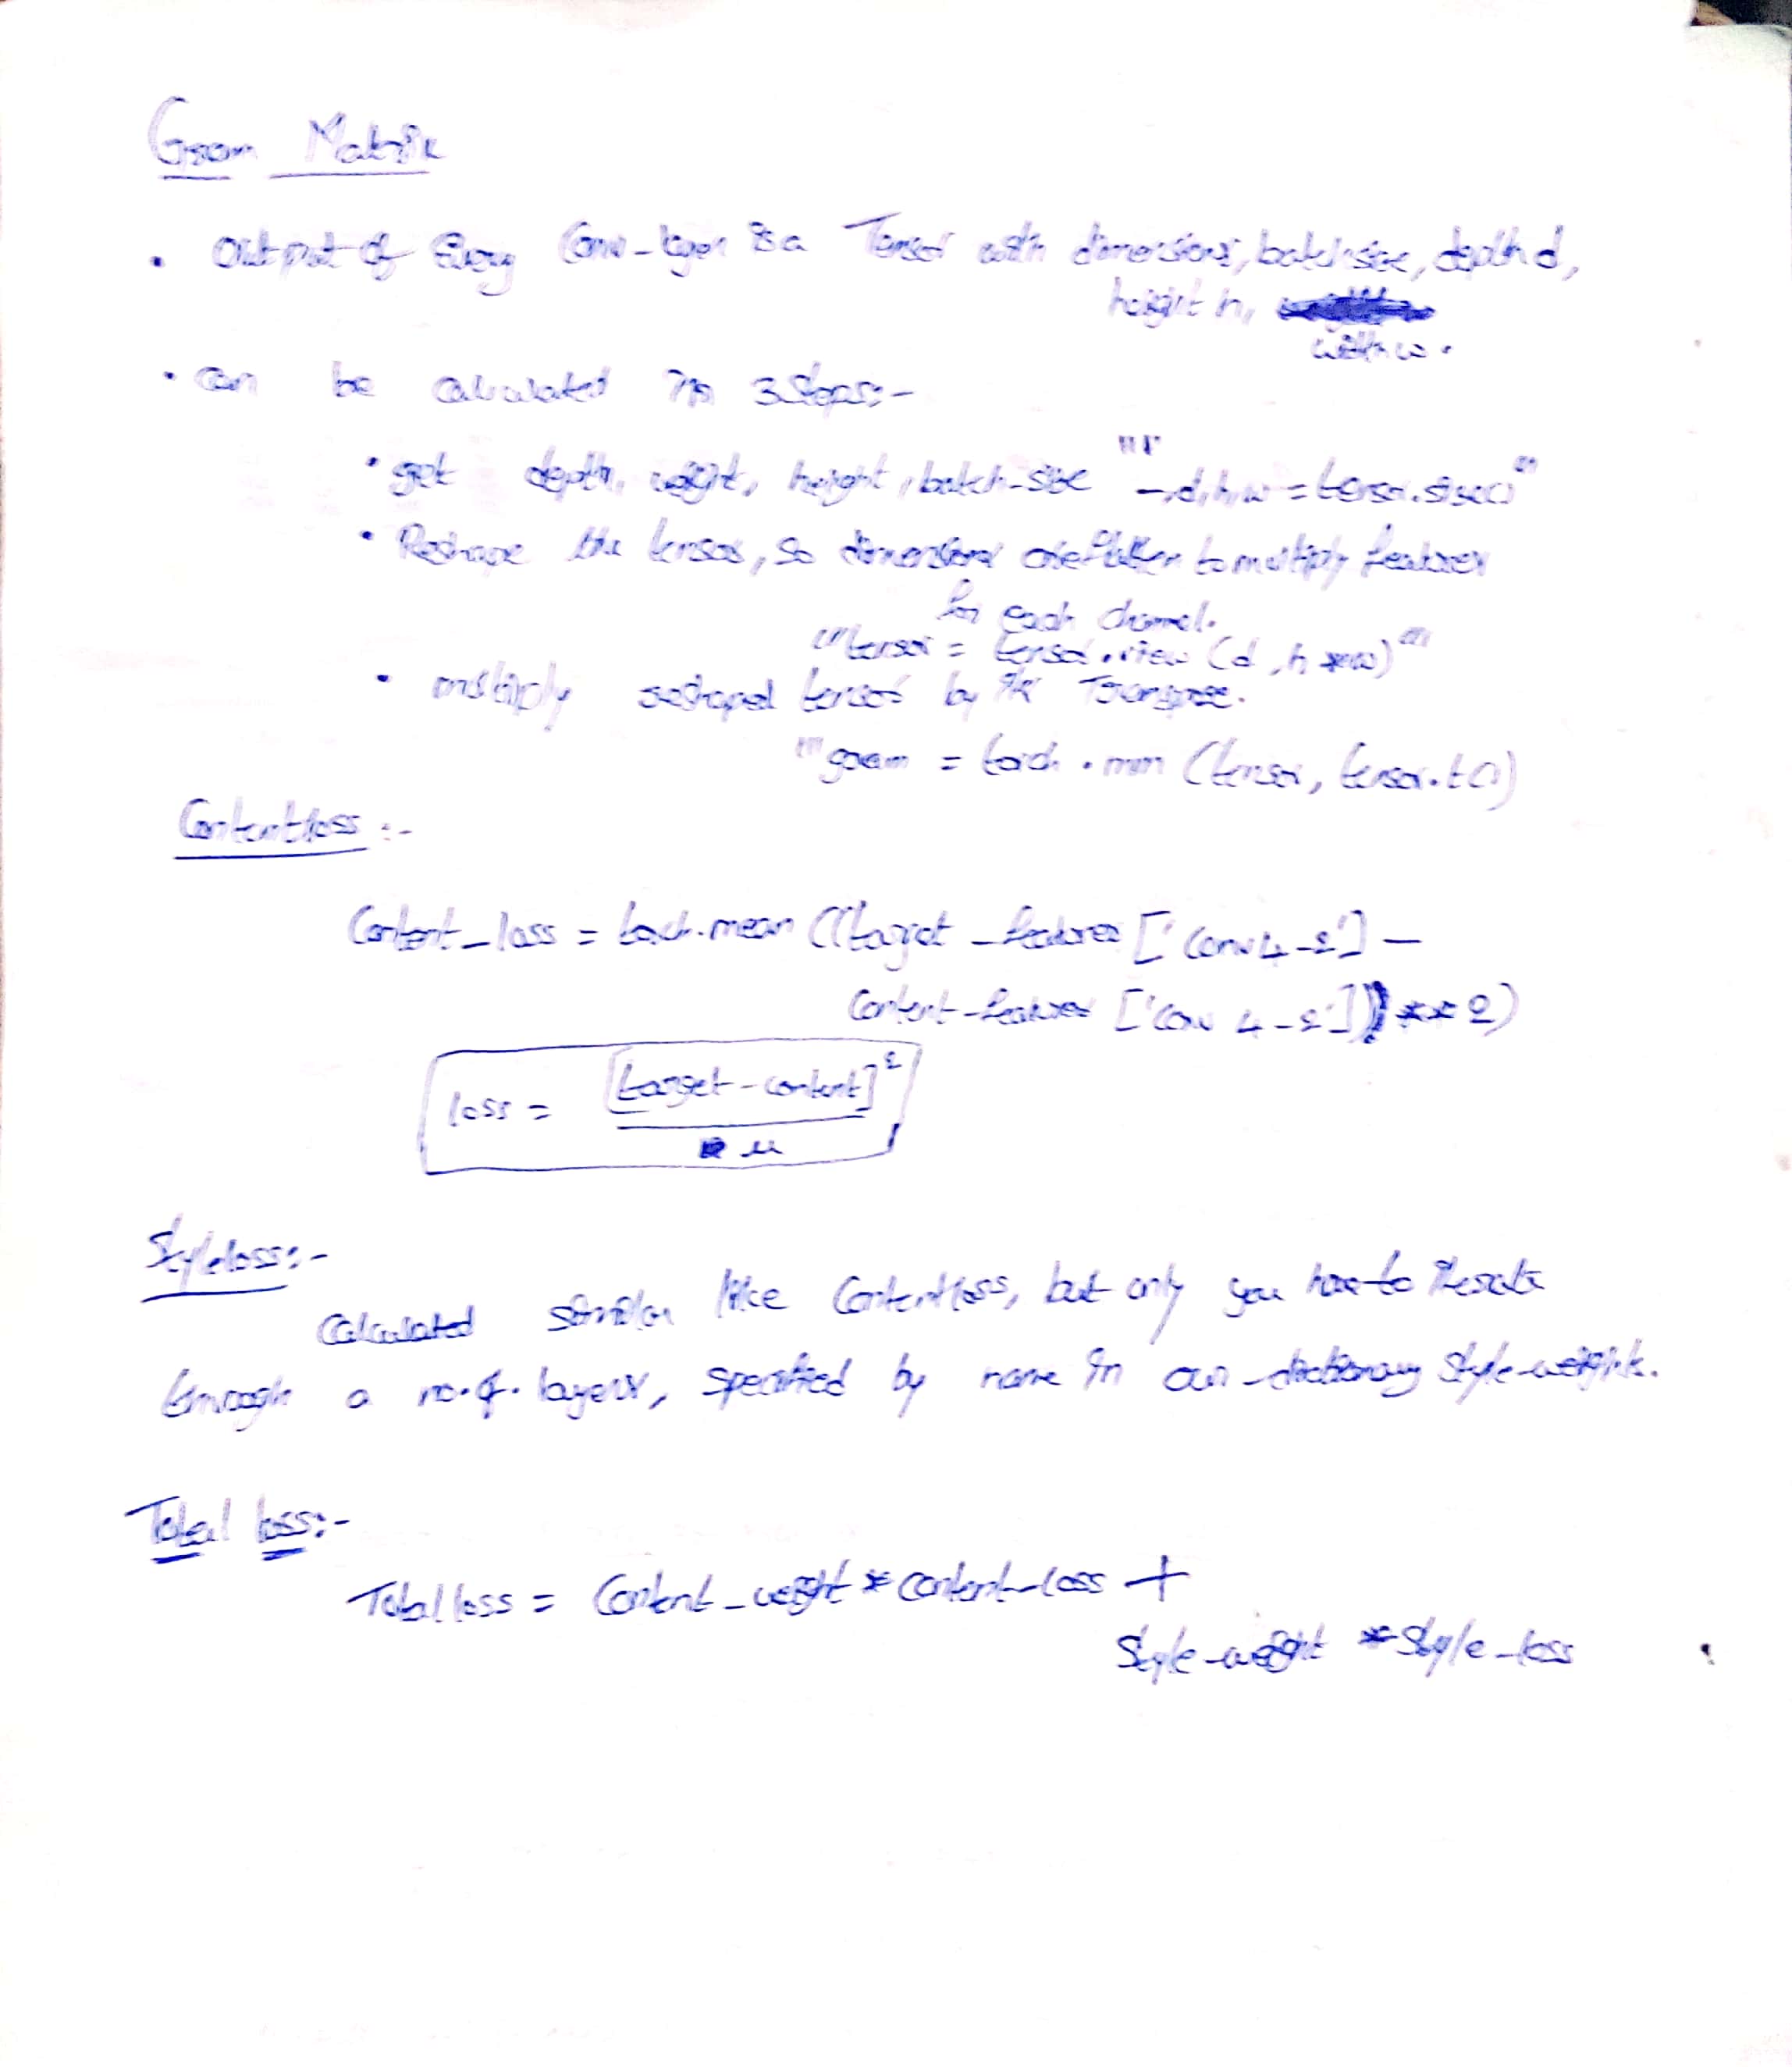 Gram Matrix
• Output of Every Conv-layer is a Tensor with dimensions, batch-size, depth d,
height h,
width w.
• can be calculated in 3 Steps:-
• get depth, weight, height, batch-size """ _,d,h,w = tensor.size() "
• Reshape the tensor, so dimensional are flatten to multiply features
for each channel.
"" tensor = tensor.view (d, h*w) """
• multiply reshaped tensor by it's Transpose.
""" gram = torch.mm (tensor, tensor.t())
Contentloss :-
Content_loss = torch.mean ((target_features ['conv4-2'] -
Content-features ['conv 4-2']) ** 2)
loss = [target-content]²
u
Styleloss:-
Calculated similar like Contentloss, but only you have to iterate
through a no.of. layers, specified by name in our dictionary Style-weights.
Total loss:-
Total loss = Content_weight * content_loss +
Style-weight * Style_loss